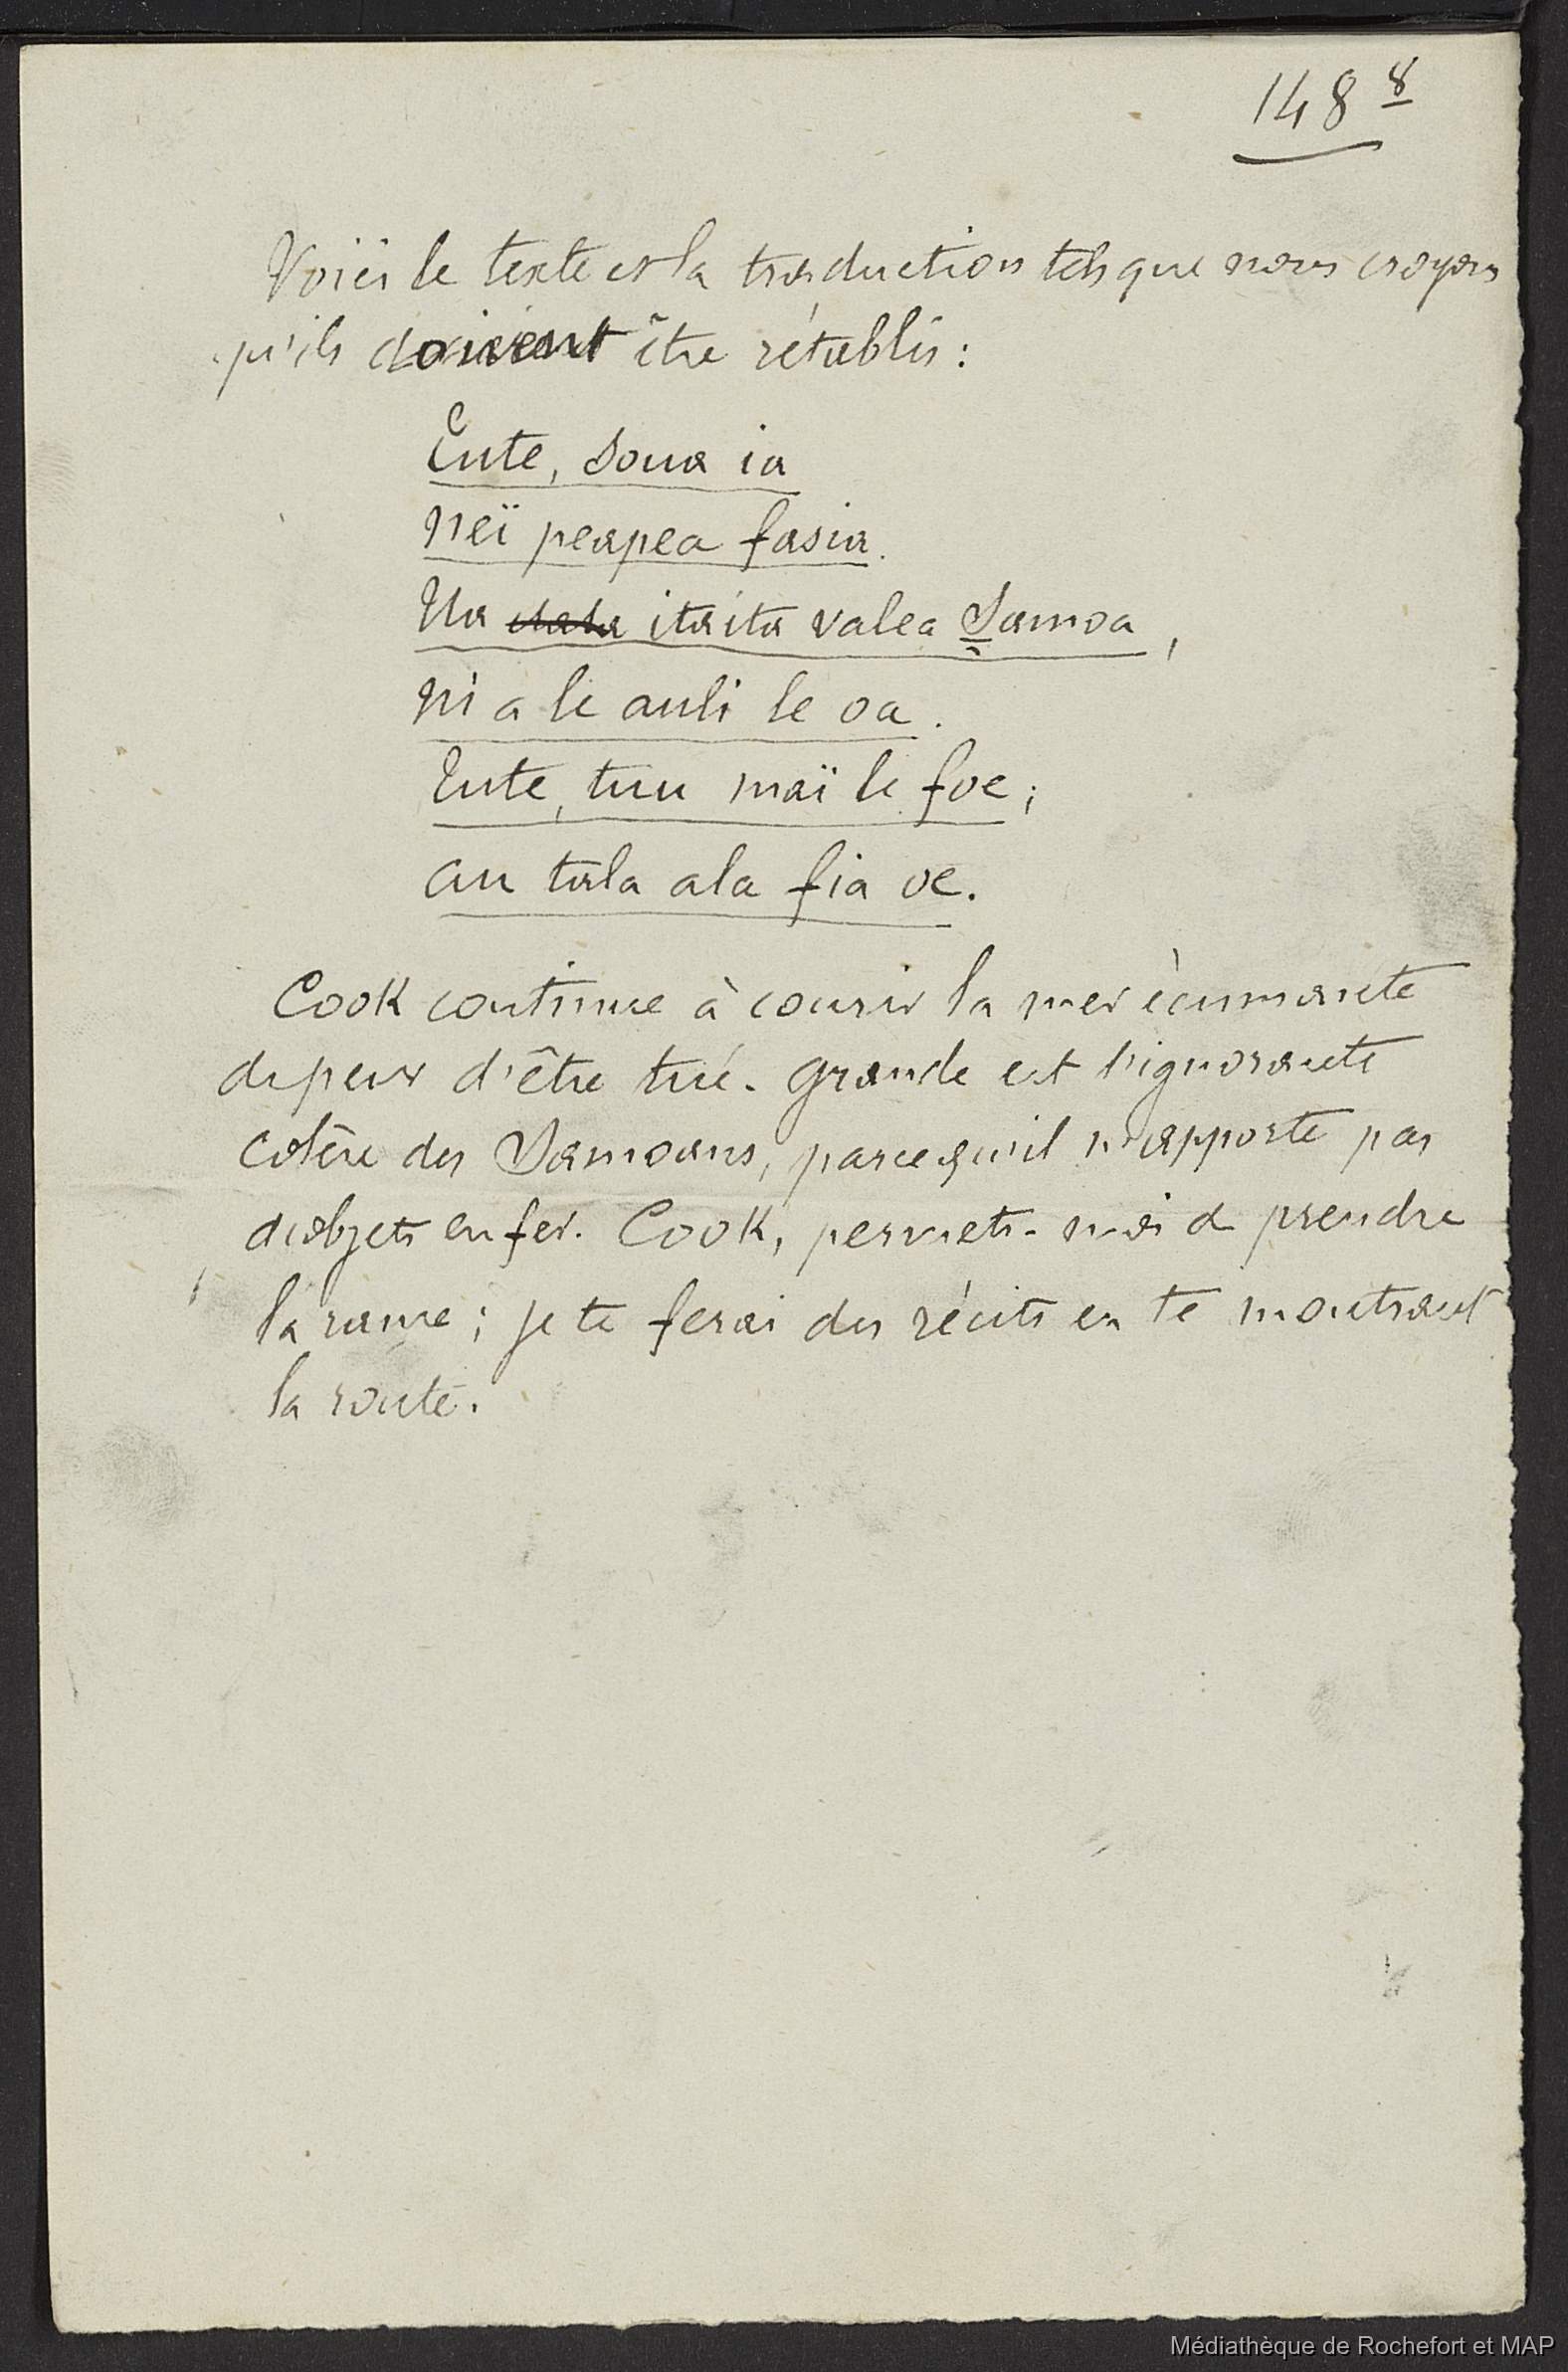 148 8
Voici le texte et la traduction tels que nous croyons
qu'ils doivent être rétablis :
Tute, soua ia
neï peapea fasia.
Ua itaita valea Samoa,
ni a le auli le oa.
Tute, tuu maï le foe ;
au tala ala fia oe.
Cook continue à courir la mer écumante
de peur d'être tué. Grande est l'ignorante
colère des Samoans, parcequ'il n'apporte pas
d'objets en fer. Cook, permets-moi de prendre
la rame ; je te ferai des récits en te montrant
la route.
Médiathèque de Rochefort et MAP